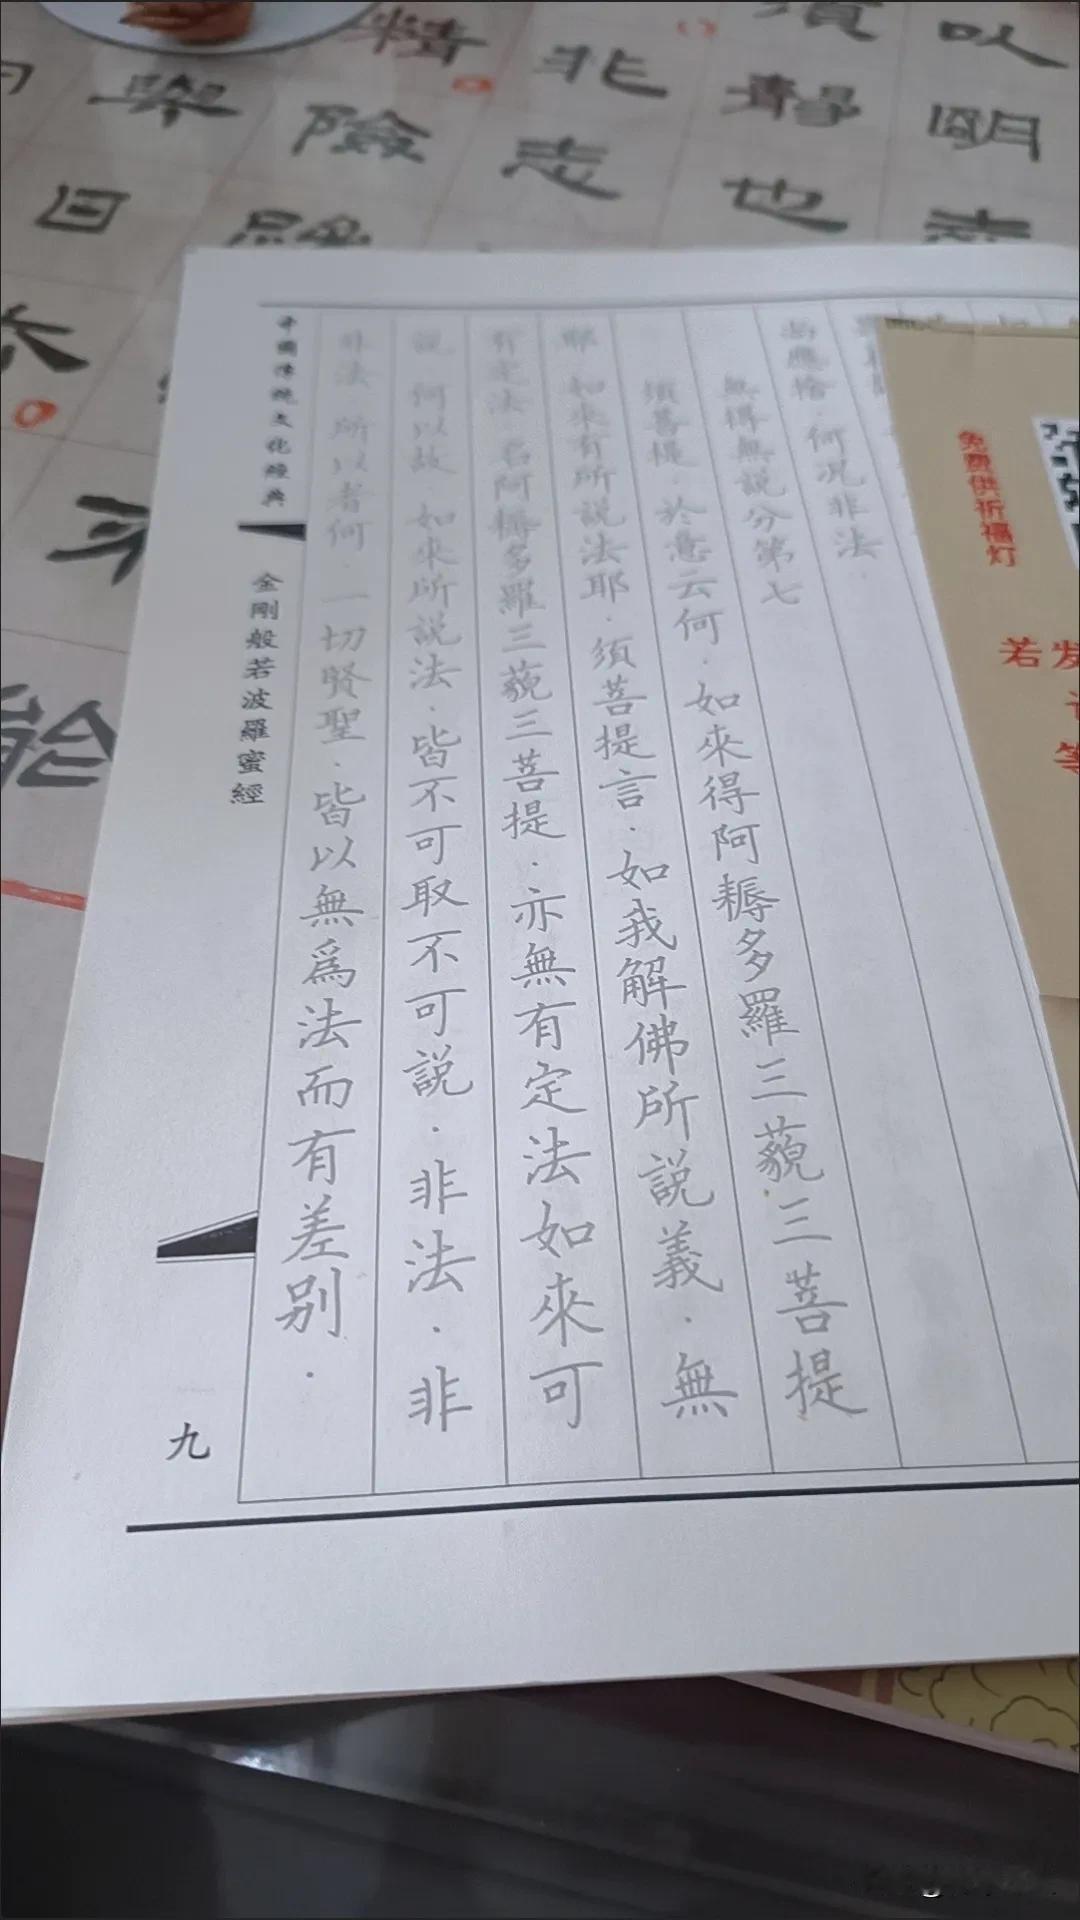 尚應捨．何況非法．
無得無說分第七
須菩提．於意云何．如來得阿耨多羅三藐三菩提
耶．如來有所說法耶．須菩提言．如我解佛所說義．無
有定法名阿耨多羅三藐三菩提．亦無有定法如來可
說．何以故．如來所說法．皆不可取不可說．非法．非
非法．所以者何．一切賢聖．皆以無為法而有差別．
中國傳統文化經典
金剛般若波羅蜜經
九
免费供祈福灯
若发
以
明
聲
也
非
志
精
險
舉
目